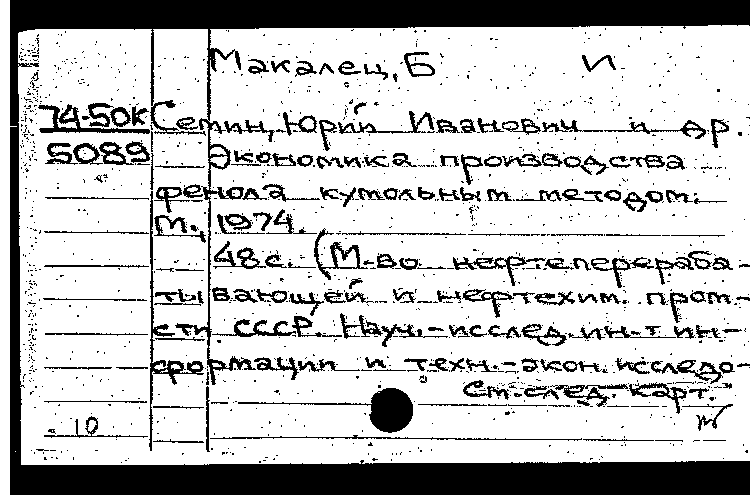 Макалец, Б И
74-50к Семин, Юрий Иванович и др.
5089 Экономика производства
фенола кумольным методом.
М., 1974.
48 с. (М-во нефтеперераба-
тывающей и нефтехим. пром-
сти СССР. Науч.-исслед. ин-т ин-
формации и техн.-экон. исследо-
См. след. карт.
10